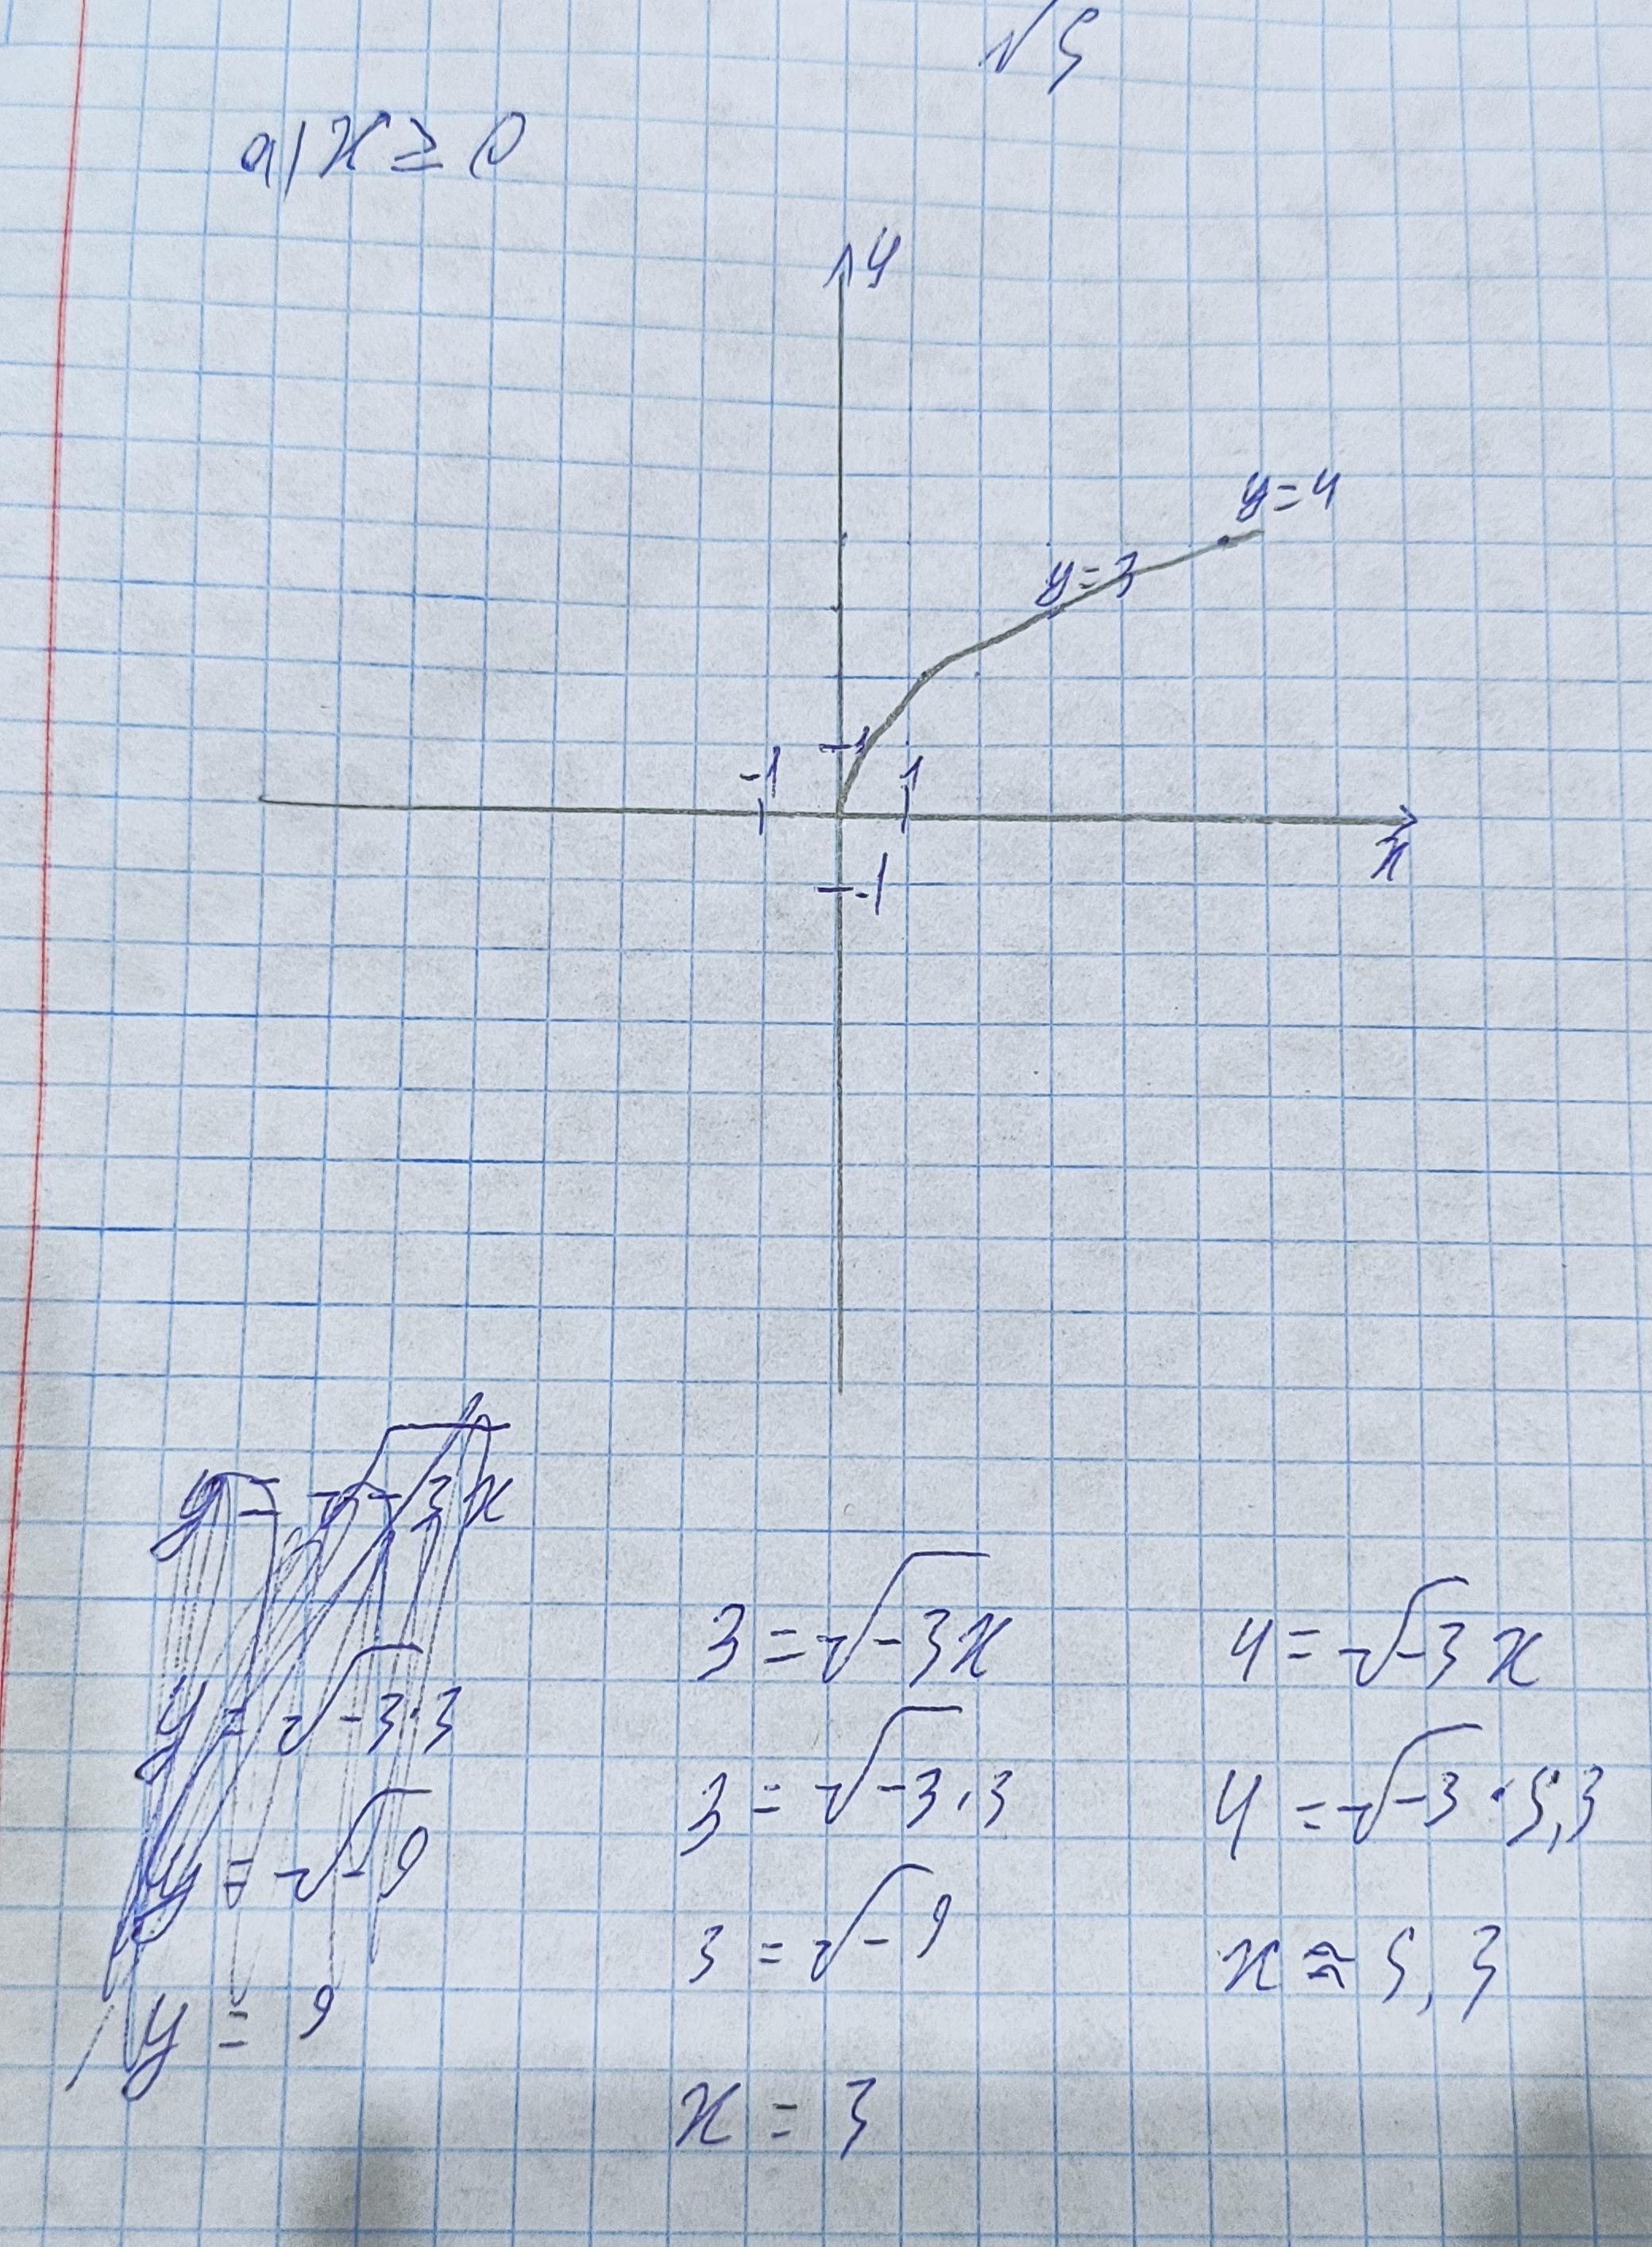 №5
а) x ≥ 0
y
y=4
y=3
1
-1
1
x
-1
y = √-3x
y = √-3·3
y = √-9
y = 9
3 = √-3x
3 = √-3·3
3 = √-9
x = 3
4 = √-3x
4 = √-3·5,3
x ≈ 5,3